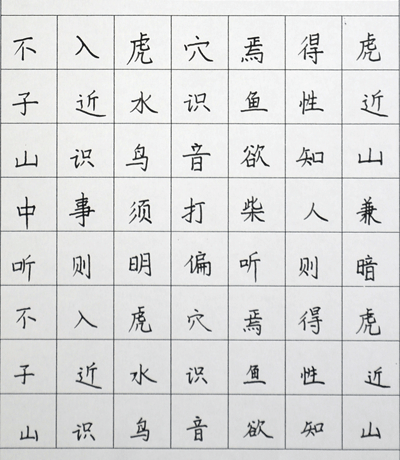 不入虎穴焉得虎
子近水识鱼性近
山识鸟音欲知山
中事须打柴人兼
听则明偏听则暗
不入虎穴焉得虎
子近水识鱼性近
山识鸟音欲知山